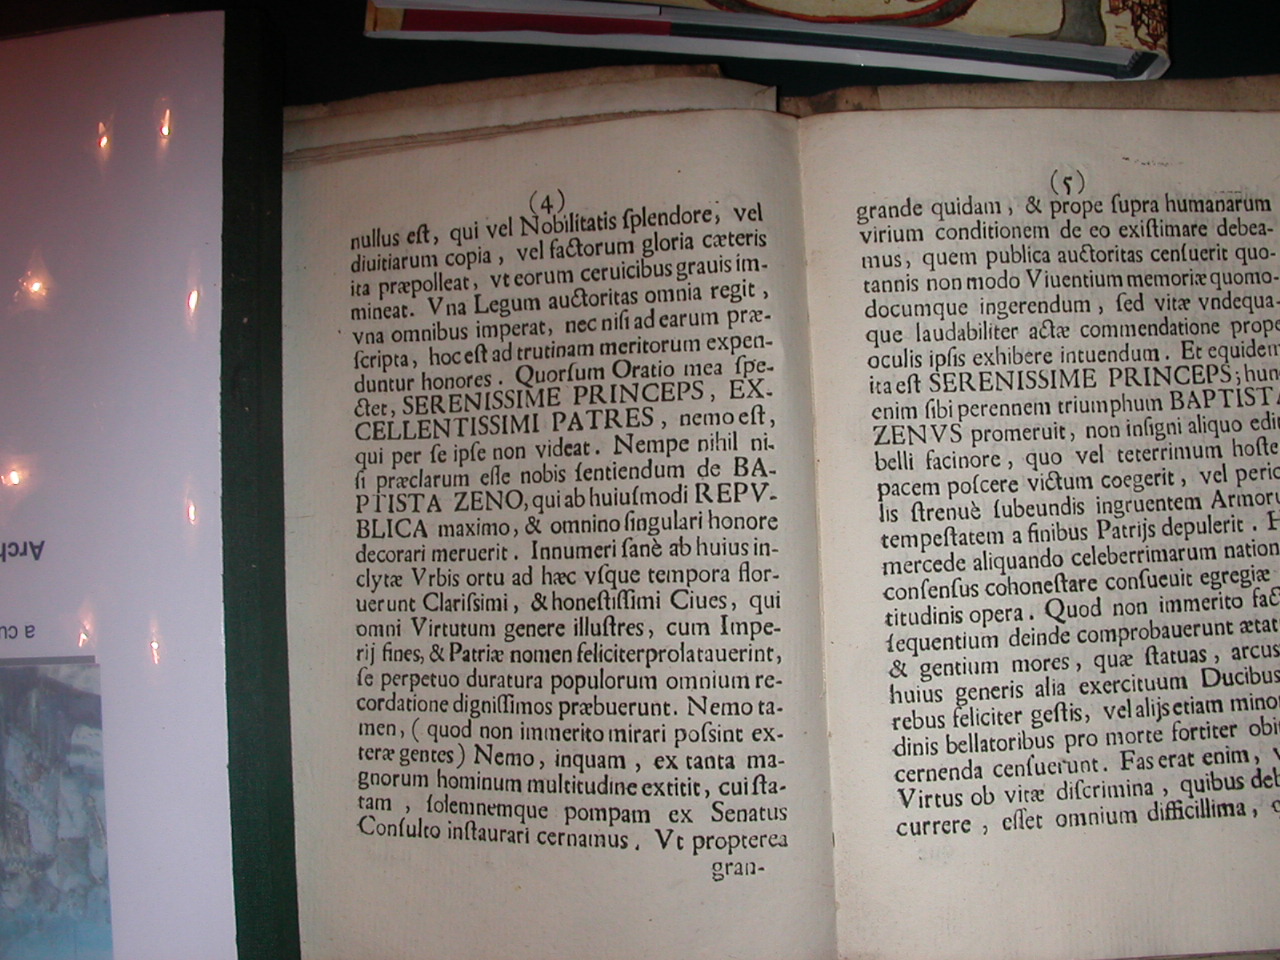 (4)
nullus eſt, qui vel Nobilitatis ſplendore, vel
diuitiarum copia, vel factorum gloria cæteris
ita præpolleat, vt eorum ceruicibus grauis im-
mineat. Vna Legum auctoritas omnia regit,
vna omnibus imperat, nec niſi ad earum præ-
ſcripta, hoc eſt ad trutinam meritorum expen-
duntur honores. Quorſum Oratio mea ſpe-
ctet, SERENISSIME PRINCEPS, EX-
CELLENTISSIMI PATRES, nemo eſt,
qui per ſe ipſe non videat. Nempe nihil ni-
ſi præclarum eſſe nobis ſentiendum de BA-
PTISTA ZENO, qui ab huiuſmodi REPV-
BLICA maximo, & omnino ſingulari honore
decorari meruerit. Innumeri ſanè ab huius in-
clytæ Vrbis ortu ad hæc vſque tempora flor-
uerunt Clariſsimi, & honeſtiſſimi Ciues, qui
omni Virtutum genere illuſtres, cum Impe-
rij fines, & Patriæ nomen feliciter prolatauerint,
ſe perpetuo duratura populorum omnium re-
cordatione digniſſimos præbuerunt. Nemo ta-
men, (quod non immerito mirari poſsint ex-
teræ gentes) Nemo, inquam, ex tanta ma-
gnorum hominum multitudine extitit, cui ſta-
tam, ſolemnemque pompam ex Senatus
Conſulto inſtaurari cernamus. Vt propterea
gran-
(5)
grande quidam, & prope ſupra humanarum
virium conditionem de eo exiſtimare debea-
mus, quem publica auctoritas cenſuerit quo-
tannis non modo Viuentium memoriæ quomo-
documque ingerendum, ſed vitæ vndequa-
que laudabiliter actæ commendatione prope
oculis ipſis exhibere intuendum. Et equidem
ita eſt SERENISSIME PRINCEPS; hun
enim ſibi perennem triumphum BAPTISTA
ZENVS promeruit, non inſigni aliquo edi
belli facinore, quo vel teterrimum hoſte
pacem poſcere victum coegerit, vel peric
lis ſtrenuè ſubeundis ingruentem Armor
tempeſtatem a finibus Patrijs depulerit.
mercede aliquando celeberrimarum nation
conſenſus cohoneſtare conſueuit egregiæ
titudinis opera. Quod non immerito fac
ſequentium deinde comprobauerunt ætat
& gentium mores, quæ ſtatuas, arcus
huius generis alia exercituum Ducibus
rebus feliciter geſtis, vel alijs etiam mino
dinis bellatoribus pro morte fortiter obi
cernenda cenſuerunt. Fas erat enim,
Virtus ob vitæ diſcrimina, quibus deb
currere, eſſet omnium difficillima,
Arch
a cu